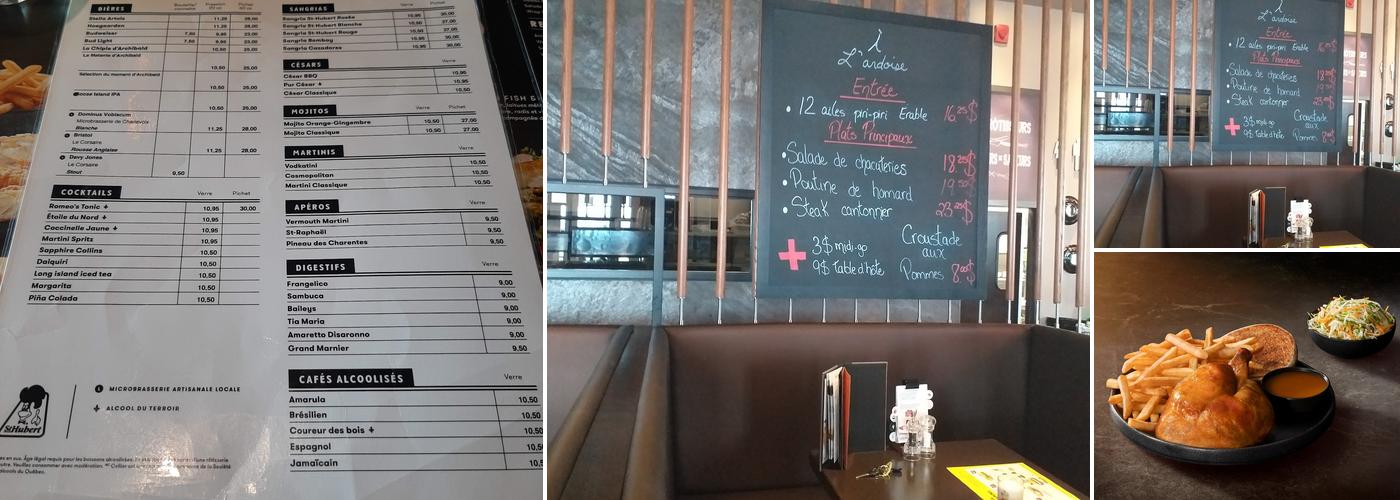 BIÈRES
Stella Artois 11,25 28,00
Hoegaarden 11,25 28,00
Budweiser 7,50 9,95 23,00
Bud Light 7,50 9,95 23,00
La Chipie d'Archibald 10,50 25,00
La Matante d'Archibald
10,50 25,00
Sélection du moment d'Archibald
10,50 25,00
Goose Island IPA
10,50 25,00
Dominus Vobiscum
Microbrasserie de Charlevoix
Blanche 11,25 28,00
Bristol
Le Corsaire
Rousse Anglaise 11,25 28,00
Davy Jones
Le Corsaire
Stout 9,50
COCKTAILS Verre Pichet
Romeo's Tonic + 10,95 30,00
Étoile du Nord + 10,95
Coccinelle Jaune + 10,95
Martini Spritz 10,95
Sapphire Collins 10,50
Daïquiri 10,50
Long island iced tea 10,50
Margarita 10,50
Piña Colada 10,50
MICROBRASSERIE ARTISANALE LOCALE
ALCOOL DU TERROIR
St-Hubert
SANGRIAS Verre Pichet
Sangria St-Hubert Rosée
Sangria St-Hubert Blanche
Sangria St-Hubert Rouge
Sangria Bombay
Sangria Cazadores
CÉSARS Verre
César BBQ 10,95
Pur César + 10,95
César Classique 10,50
MOJITOS Verre Pichet
Mojito Orange-Gingembre 10,50 27,00
Mojito Classique 10,50 27,00
MARTINIS Verre
Vodkatini 10,50
Cosmopolitan 10,50
Martini Classique 10,50
APÉROS Verre
Vermouth Martini 9,50
St-Raphaël 9,50
Pineau des Charentes 9,50
DIGESTIFS Verre
Frangelico 9,00
Sambuca 9,00
Baileys 9,00
Tia Maria 9,00
Amaretto Disaronno 9,00
Grand Marnier 9,50
CAFÉS ALCOOLISÉS Verre
Amarula 10,50
Brésilien 10,50
Coureur des bois + 10,50
Espagnol 10,50
Jamaïcain 10,5
À
L'ardoise
Entrée
• 12 ailes piri-piri Erable 16.25$
Plats Principaux
• Salade de chacuteries 18.25$
• Poutine de homard 19.50$
• Steak cantonner 23.25$
+ 3$ midi-go
9$ Table d'hôte
Croustade
aux
Pommes 8.00$
À
L'ardoise
Entrée
• 12 ailes piri-piri Erable
Plats Principaux
• Salade de chacuteries
• Poutine de homard
• Steak cantonner
+ 3$ midi-go
9$ Table d'hôte
Croustade
aux
Pommes